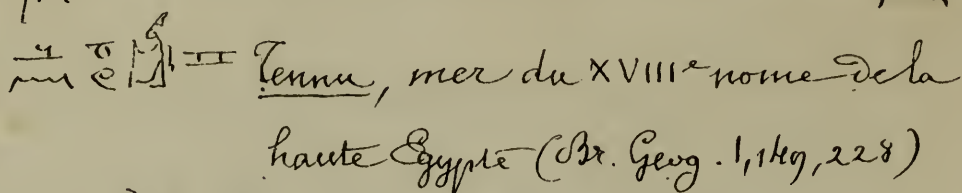 Tennu, mer du XVIIIe nome de la
haute Egypte (Br. Geog. 1,149,228)